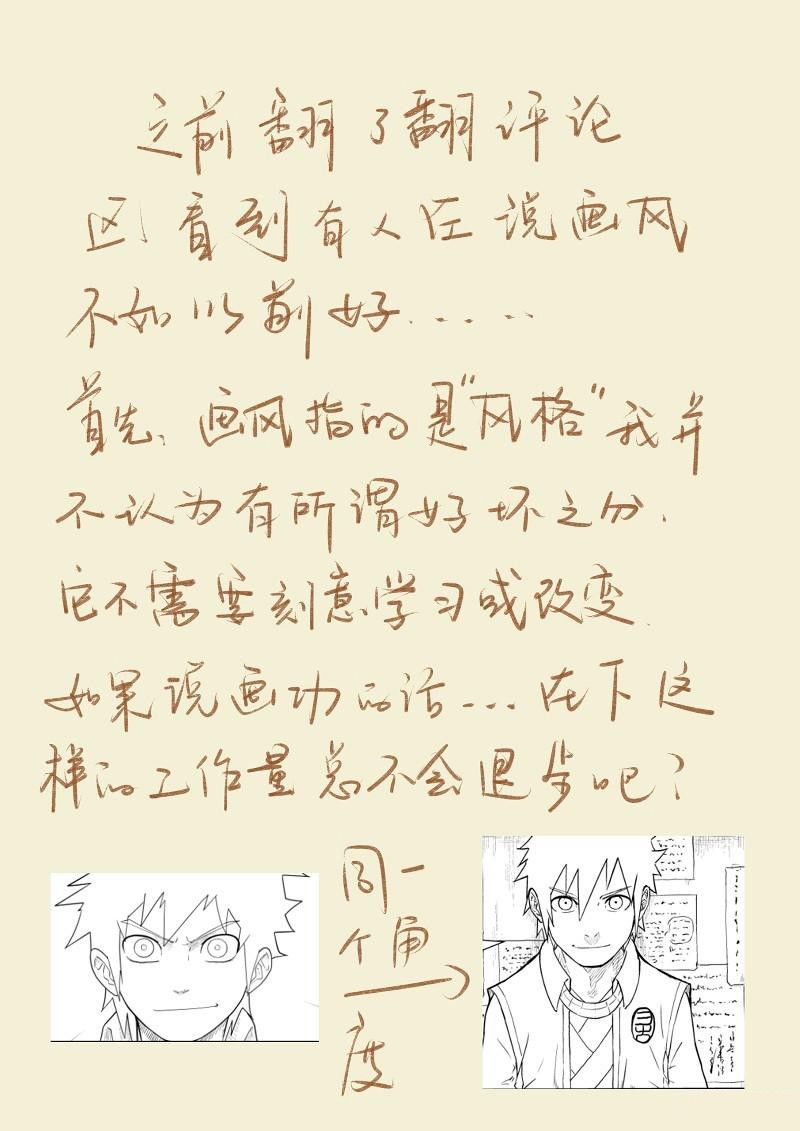 之前翻了翻评论
区!看到有人在说画风
不如以前好......
首先、画风指的是"风格"我并
不认为有所谓好坏之分.
它不需要刻意学习或改变.
如果说画功的话...在下这
样的工作量总不会退步吧?
同一
个角
度